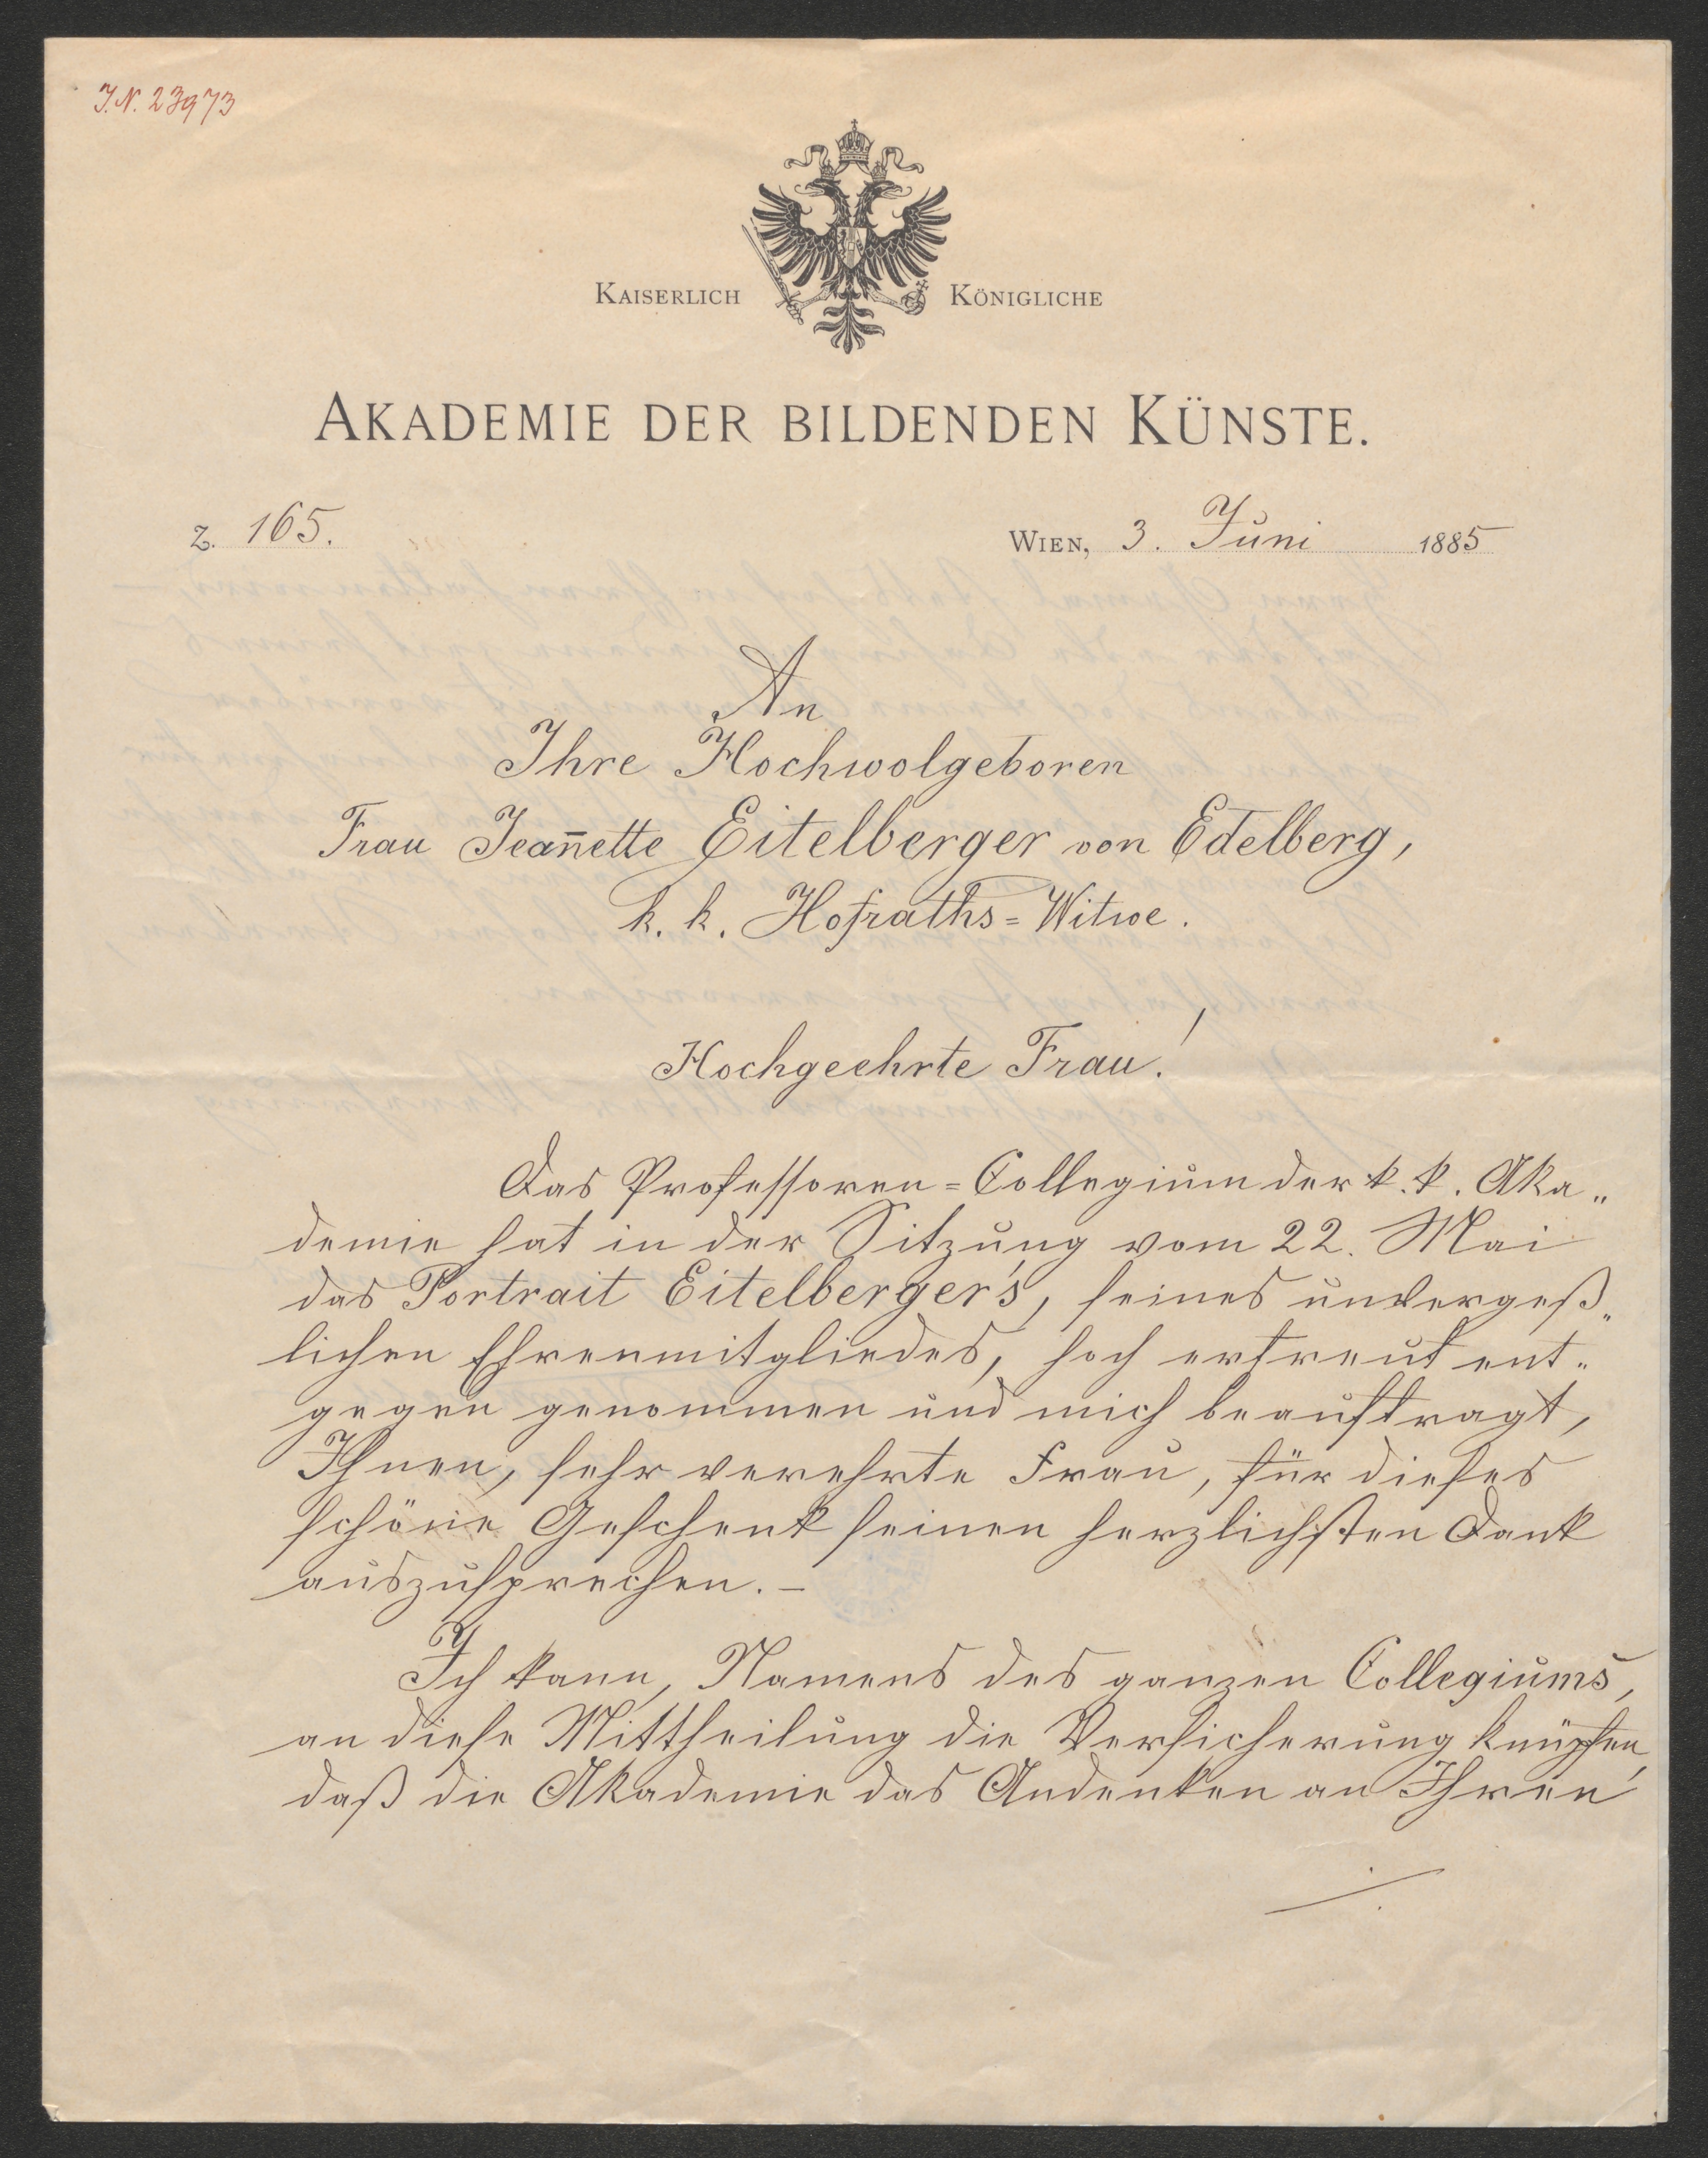 J.N. 23973
KAISERLICH KÖNIGLICHE
AKADEMIE DER BILDENDEN KÜNSTE.
Z. 165.
WIEN, 3. Juni 1885
An
Ihre Hochwolgeboren
Frau Jean̄ette Eitelberger von Edelberg,
k. k. Hofraths=Witwe.
Hochgeehrte Frau!
Das Professoren=Collegium der k. k. Aka„
demie hat in der Sitzung vom 22. Mai
das Portrait Eitelberger's, seines unvergeß„
lichen Ehrenmitgliedes, hoch erfreut ent„
gegen genommen und mich beauftragt,
Ihnen, sehr verehrte Frau, für dieses
schöne Geschenk seinen herzlichsten Dank
auszusprechen. –
Ich kann, Namens des ganzen Collegiums,
an diese Mittheilung die Versicherung knüpfen,
daß die Akademie das Andenken an Ihren
./.